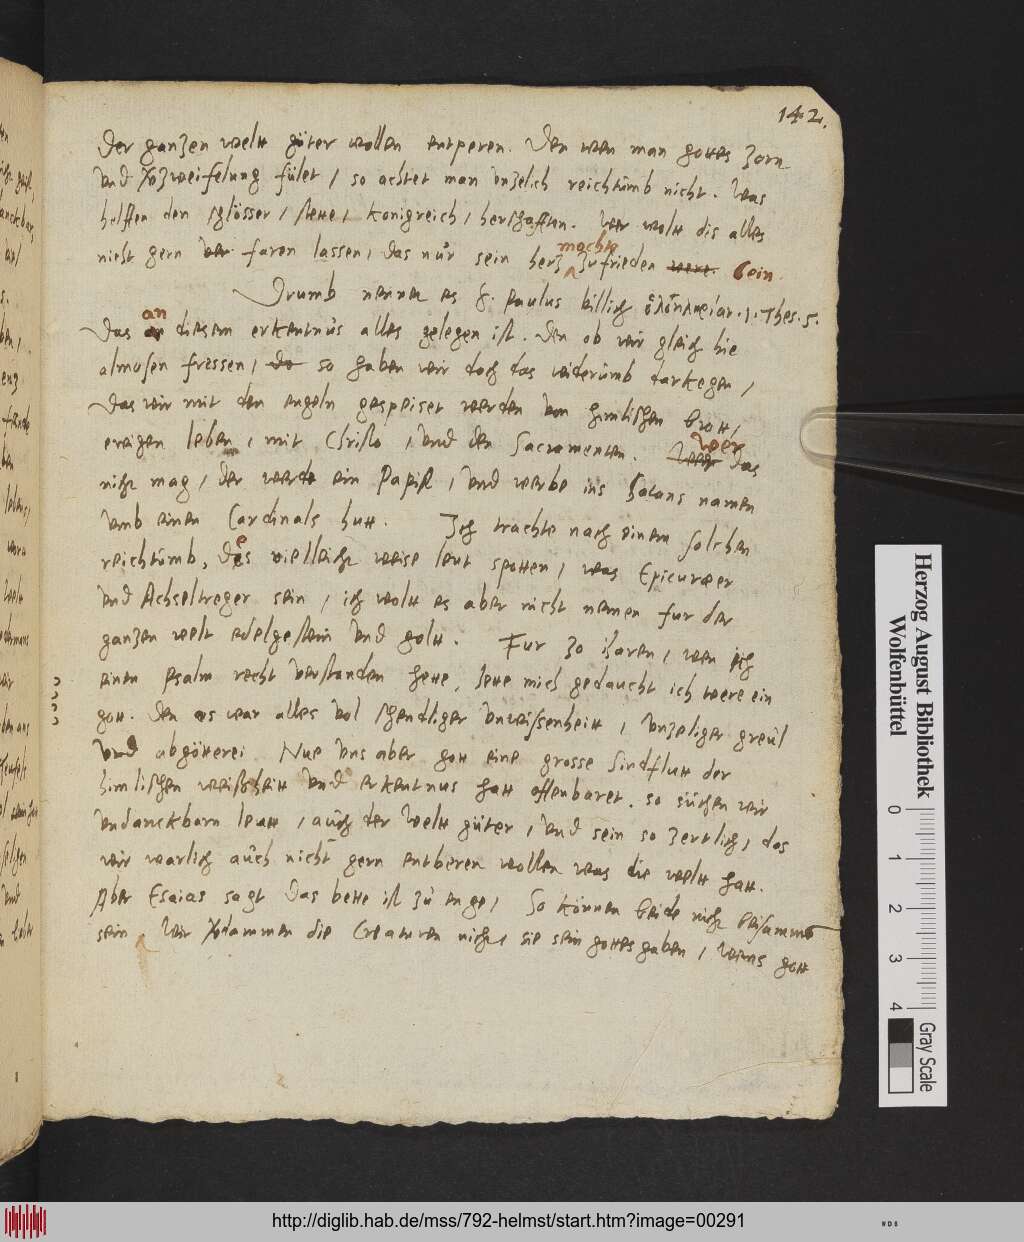 142.
Der ganzen welt güter wollen entperen. Den wen man gottes zorn
und vorzweifelung fület / so achtet man unzelich reichtumb nicht. Was
helffen den schlösser / stette / konigreich / herschafften. Wer wolt dis alles
nicht gern faren lassen / das nur sein herz machte zufrieden were. sein.
Drumb nennet es S. Paulus billich 1. Thes. 5.
Das an diesem erkentnus alles gelegen ist. Den ob wir gleich hie
almosen fressen / do so haben wir doch das widerumb darkegen /
Das wir mit den engeln gespeiset werden von himlischen brott /
ewigen leben / mit Christo / und den Sacramenten. Wer das
nicht mag / der werde ein Papist / und werbe ins Satans namen
umb einen Cardinals hutt. Ich trachte nach einem solchen
reichtumb, des vielleich weise leut spotten / was Epicuraeer
und Achseltreger sein / ich wolt es aber nicht nemen fur der
ganzen welt edelgestein und golt. Fur 30 iharen / wen ich
einen psalm recht verstanden hette, hette mich gedaucht ich were ein
gott. den es war alles vol schentliger unwissenheitt / unzeliger greul
und abgötterei. Nue uns aber gott eine grosse Sindflutt der
himlischen weißheitt und erkentnus hatt offenbaret. so suchen wir
undanckbarn leutt / auch der welt güter / und sein so zertlich / das
wir warlich auch nicht gern entberen wollen was die welt hatt.
Aber Esaias sagt Das bette ist zu enge / So können beide nich beisammen
sein / Wir vordammen die Creaturen nicht / sie sein gottes gaben / wens gott
Herzog August Bibliothek
Wolfenbüttel
0 1 2 3 4
Gray Scale
http://diglib.hab.de/mss/792-helmst/start.htm?image=00291